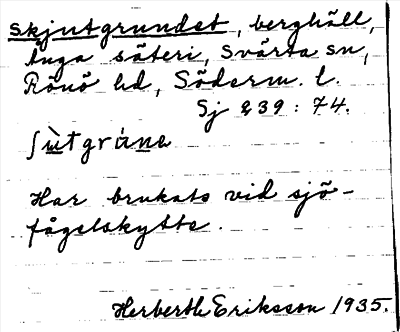 Skjutgrundet, berghäll,
Inga säteri, Svärta sn,
Rönö hd, Söderm. l.
Sj 239 : 74.
ʃùtgrùne
Har brukats vid sjö-
fågelskytte.
Herberth Eriksson 1935.